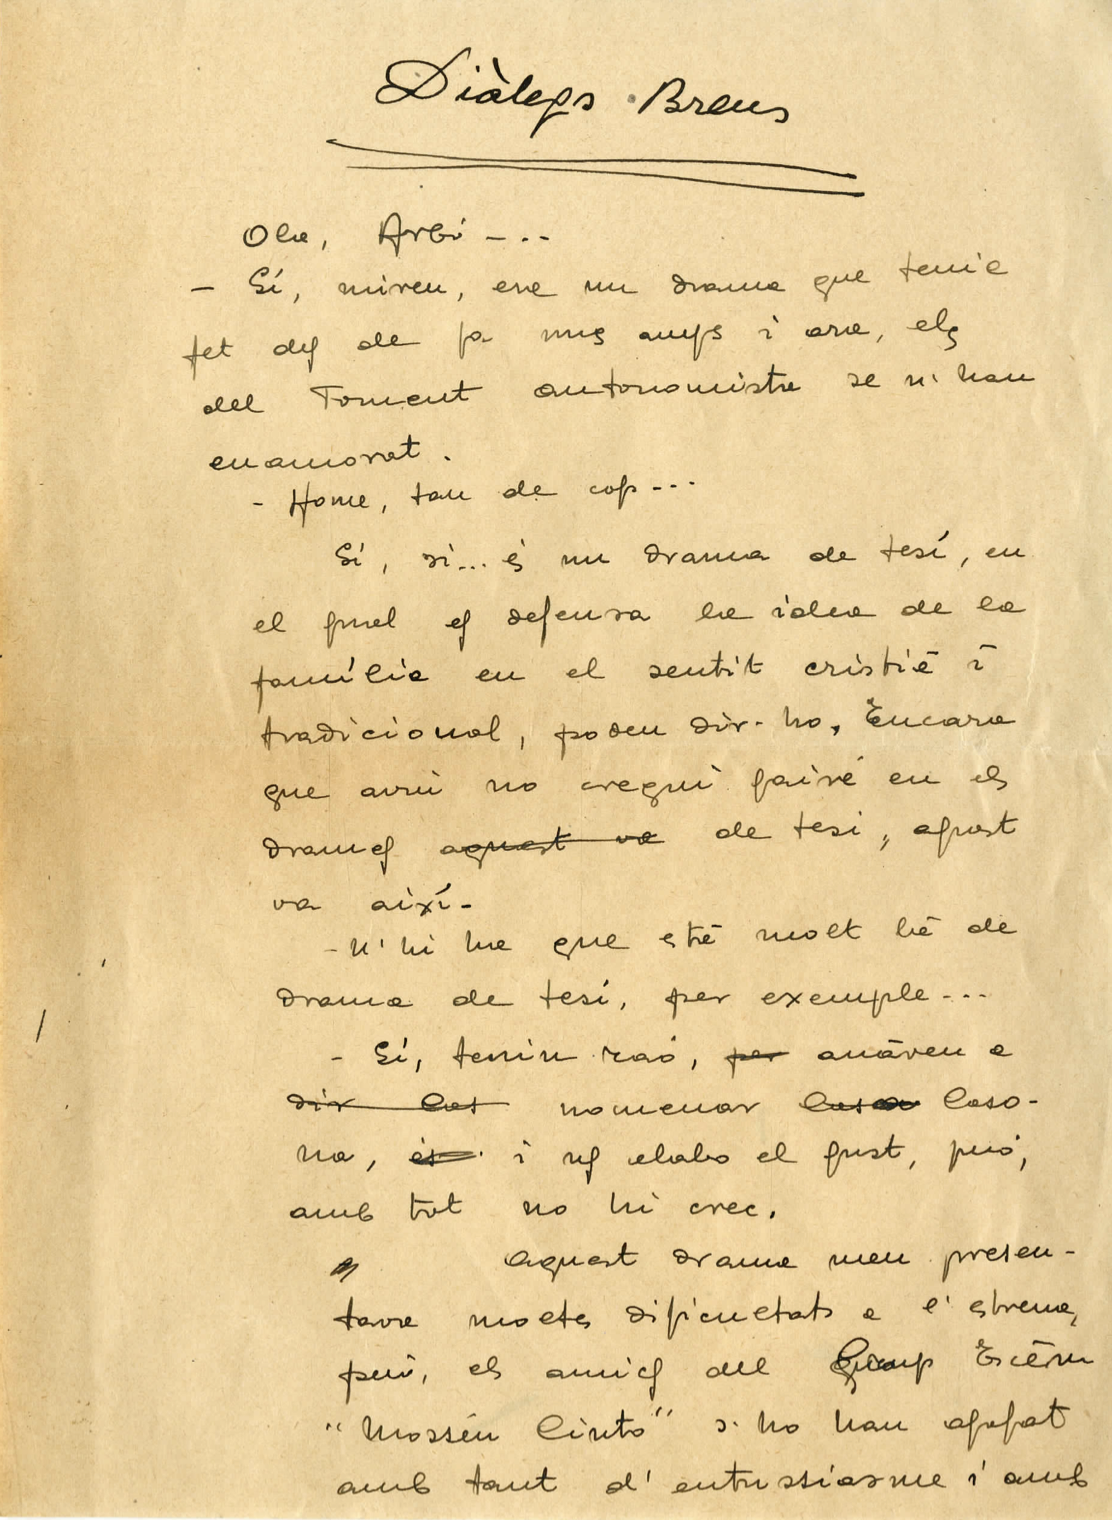 Diàlegs Breus
Ola, Arbó - ..
- Sí, mireu, era un drama que tenia
fet des de fa uns anys i ara, els
del Foment autonomista se n'han
enamorat.
- Home, tan de cop ---
Sí, sí... és un drama de tesi, en
el qual es defensa la idea de la
família en el sentit cristià i
tradicional, podeu dir-ho, Encara
que avui no cregui gaire en els
drames aquest va de tesi, aquest
va així -
- N'hi ha que està molt bé de
drama de tesi, per exemple ---
- Sí, teniu raó, per anàveu a
dir Cas nomenar Casa Caso-
na, és i us alabo el gust, però,
amb tot no hi crec.
Aquest drama meu presen-
tava moltes dificultats a l'estrena,
però, els amics del Grup Escènic
"Mossén Cinto" s'ho han agafat
amb tant d'entussiasme i amb